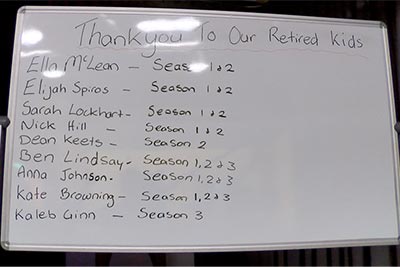 Thankyou To Our Retired Kids
Ella McLean - Season 1 & 2
Elijah Spiros - Season 1 & 2
Sarah Lockhart - Season 1 & 2
Nick Hill - Season 1 & 2
Dean Keets - Season 2
Ben Lindsay - Season 1, 2 & 3
Anna Johnson - Season 1, 2 & 3
Kate Browning - Season 1, 2 & 3
Kaleb Ginn - Season 3